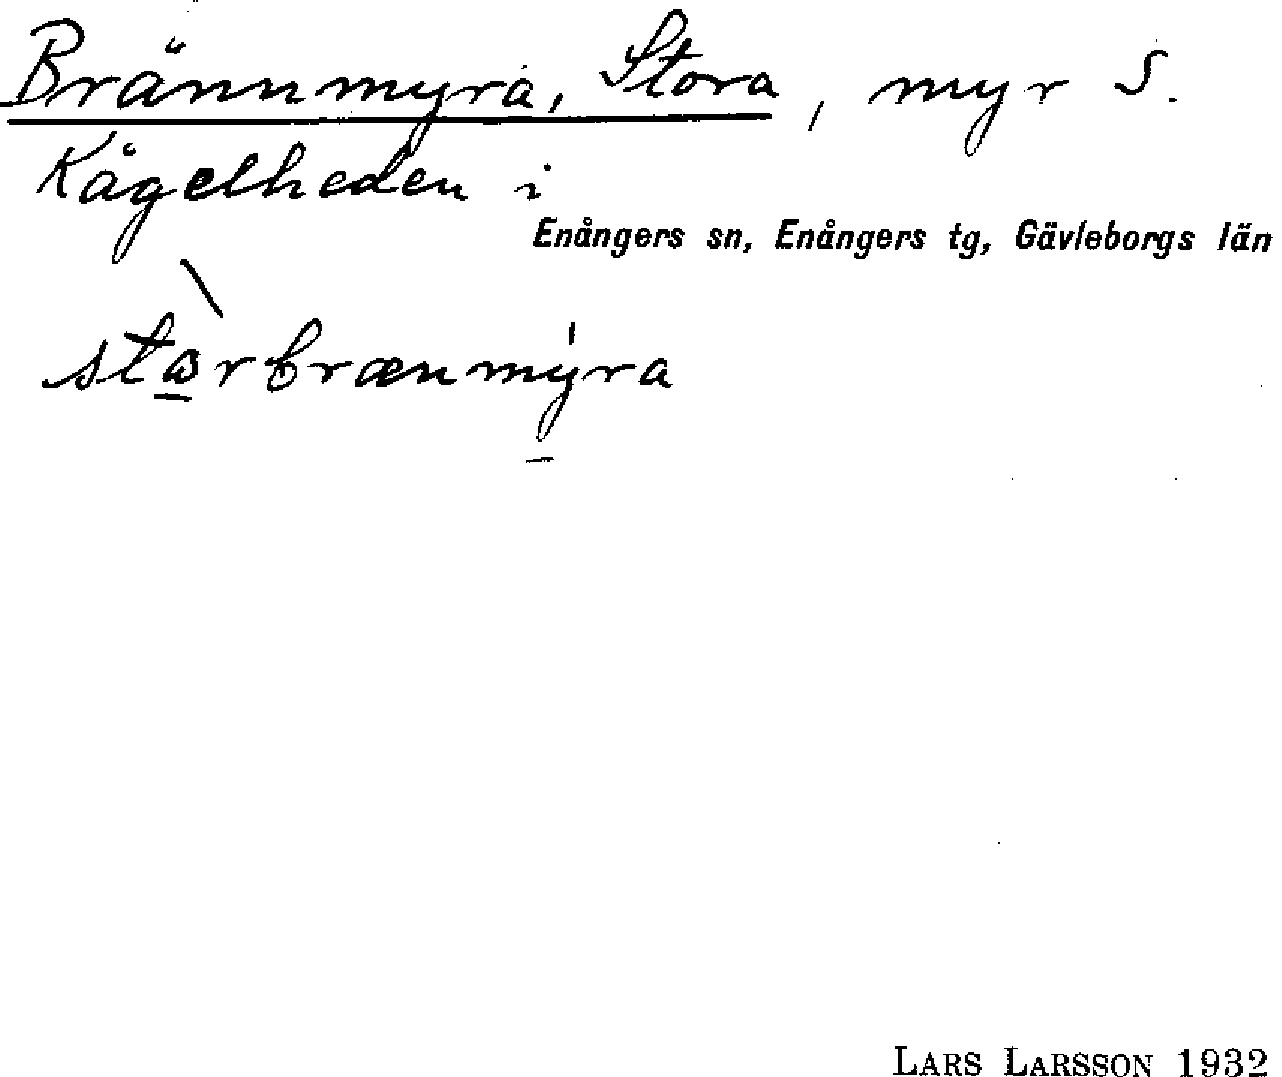 Brännmyra, Stora, myr S.
Kågelheden i
Enångers sn, Enångers tg, Gävleborgs län
storbrænmyra
LARS LARSSON 1932